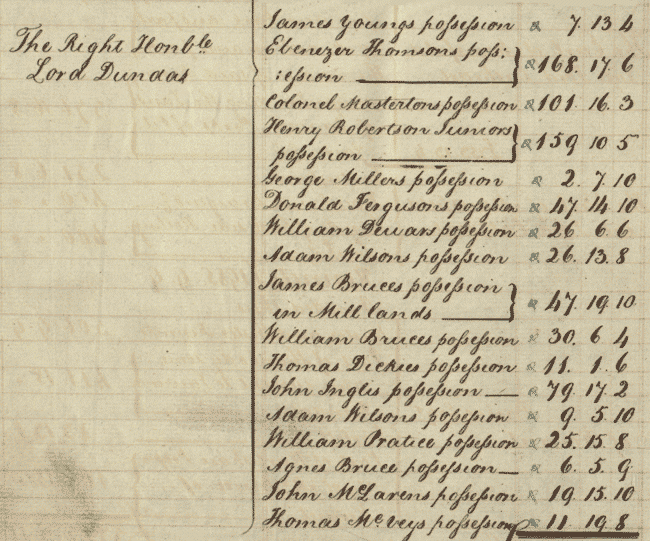 The Right Honble
Lord Dundas
James Youngs possession 7. 13 4
Ebenezer Thomsons poss:
:ession 168. 17. 6
Colonel Mastertons possession 101. 16. 3
Henry Robertson Juniors
possession 159 10 5
George Millers possession 2. 7. 10
Donald Fergusons possession 47. 14 10
William Dewars possession 26 6. 6
Adam Wilsons possession 26. 13. 8
James Bruces possession
in Mill lands 47. 19. 10
William Bruces possession 30. 6 4
Thomas Dickies possession 11. 1. 6
John Inglis possession 79. 17. 2
Adam Wilsons possession 9. 5. 10
William Pratice possession 25. 15. 8
Agnes Bruce possession 6. 5. 9
John McLarens possession 19 15. 10
Thomas McVeys possession 11 19 8